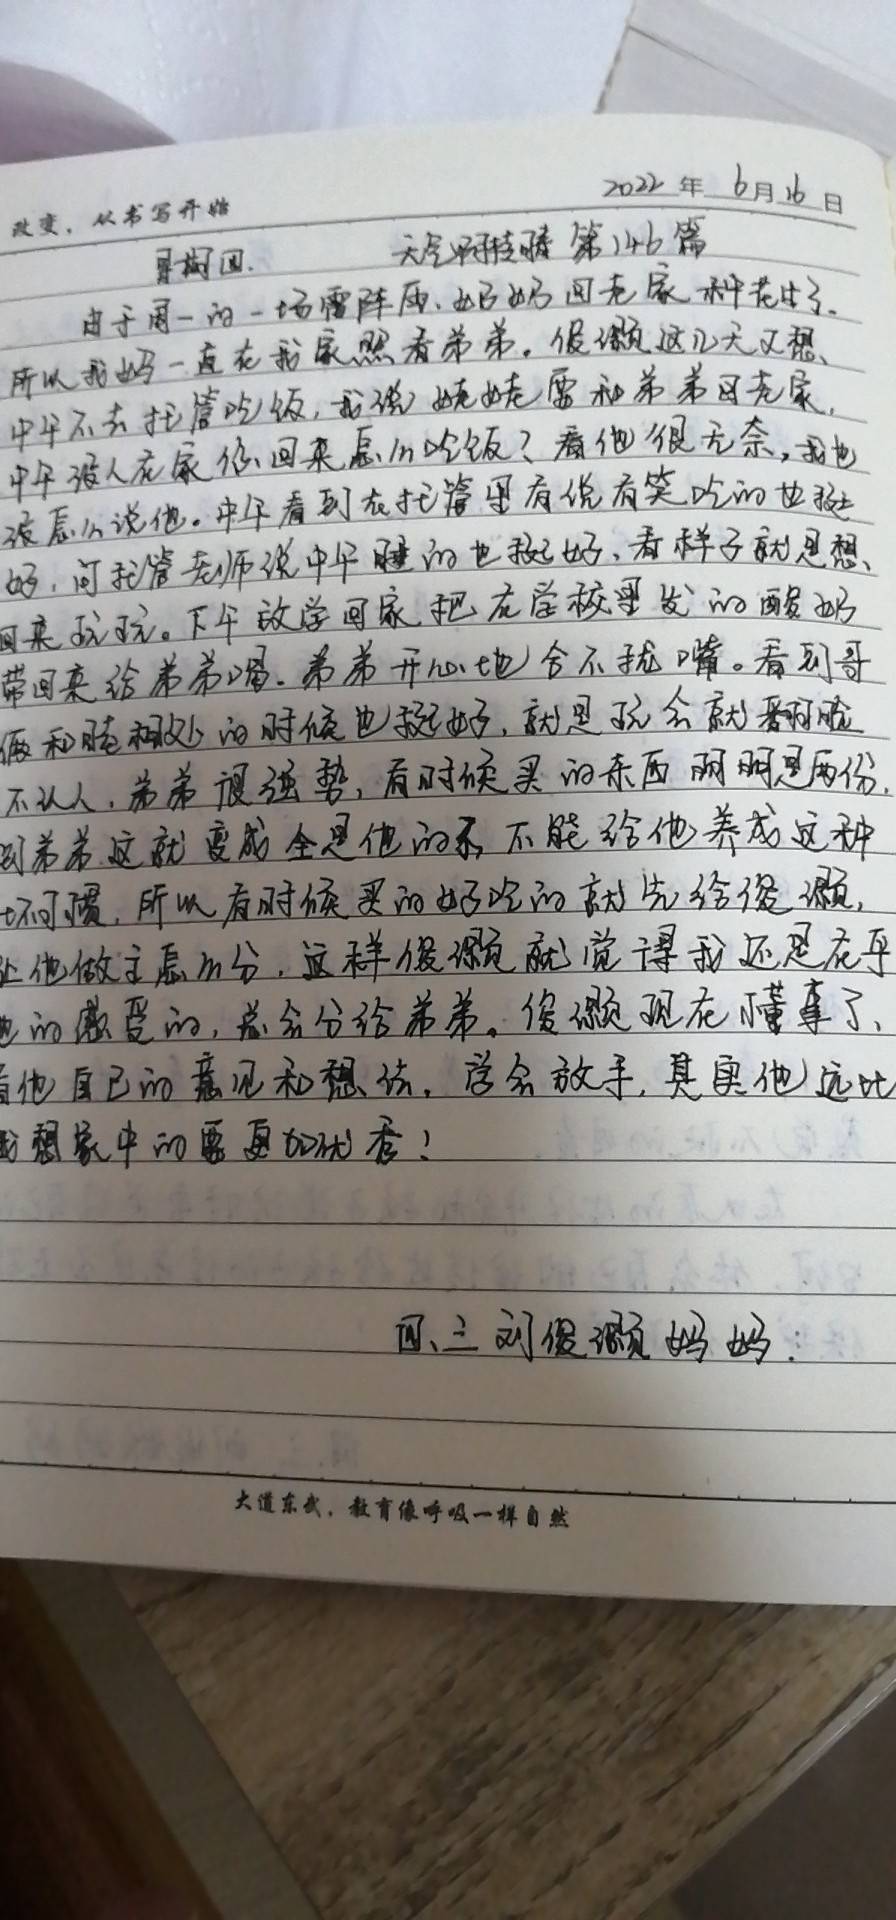 改变，从书写开始
2022年 6月16日
星期四. 天气阴转晴 第146篇
由于周一的一场雷阵雨、奶奶回老家种花生了。
所以我妈一直在我家照看弟弟。俊灏这几天又想、
中午不去托管吃饭，我说姥姥要和弟弟回老家，
中午没人在家你回来怎么吃饭？看他很无奈，我也
没怎么说他。中午看到在托管里有说有笑吃的也挺
好，问托管老师说中午睡的也挺好、看样子就是想、
回来玩玩。下午放学回家把在学校里发的酸奶
带回来给弟弟喝。弟弟开心地合不拢嘴。看到哥
俩和睦相处的时候也挺好，就是玩会就翻脸
不认人，弟弟很强势，有时候买的东西明明是两份，
到弟弟这就变成全是他的了，不能给他养成这种
坏习惯，所以有时候买的好吃的就先给俊灏，
让他做主怎么分，这样俊灏就觉得我还是在乎
他的感受的，总会分给弟弟。俊灏现在懂事了、
有他自己的意见和想法，学会放手，其实他远比
我想象中的要更加优秀！
四、三 刘俊灏妈妈：
大道东武，教育像呼吸一样自然